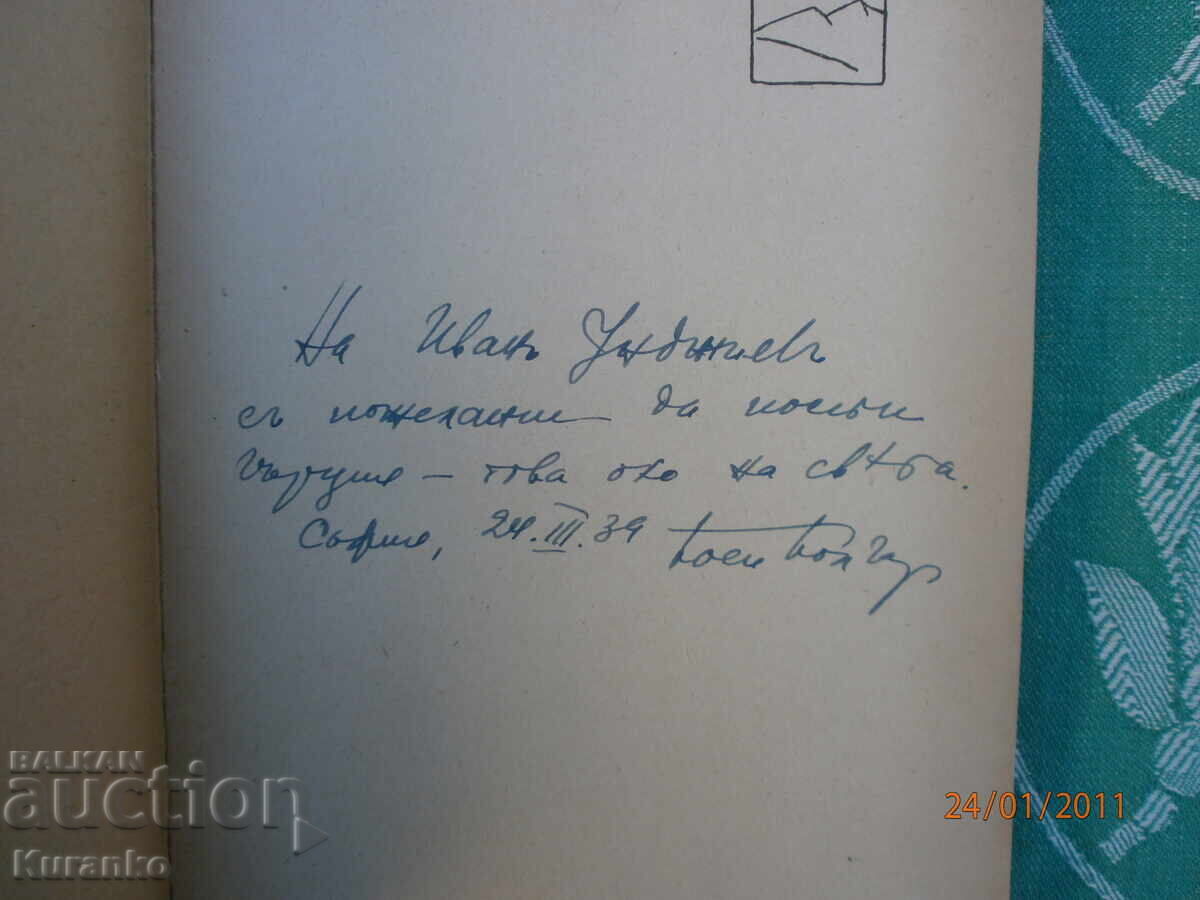 На Иванъ Унджиевъ
съ пожелание да
– това око на свѣта.
София, 24.III.39 Боян Болгар
BALKAN
auction
Kuranko
24/01/2011